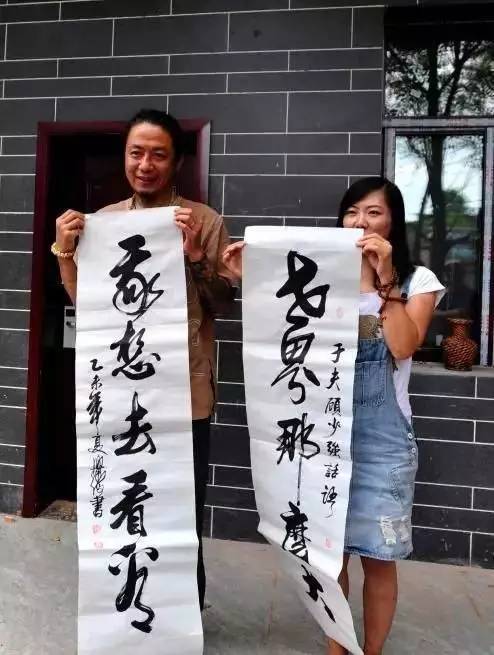 于夫顧少強話語
世界那麼大
我想去看看
乙未年夏書